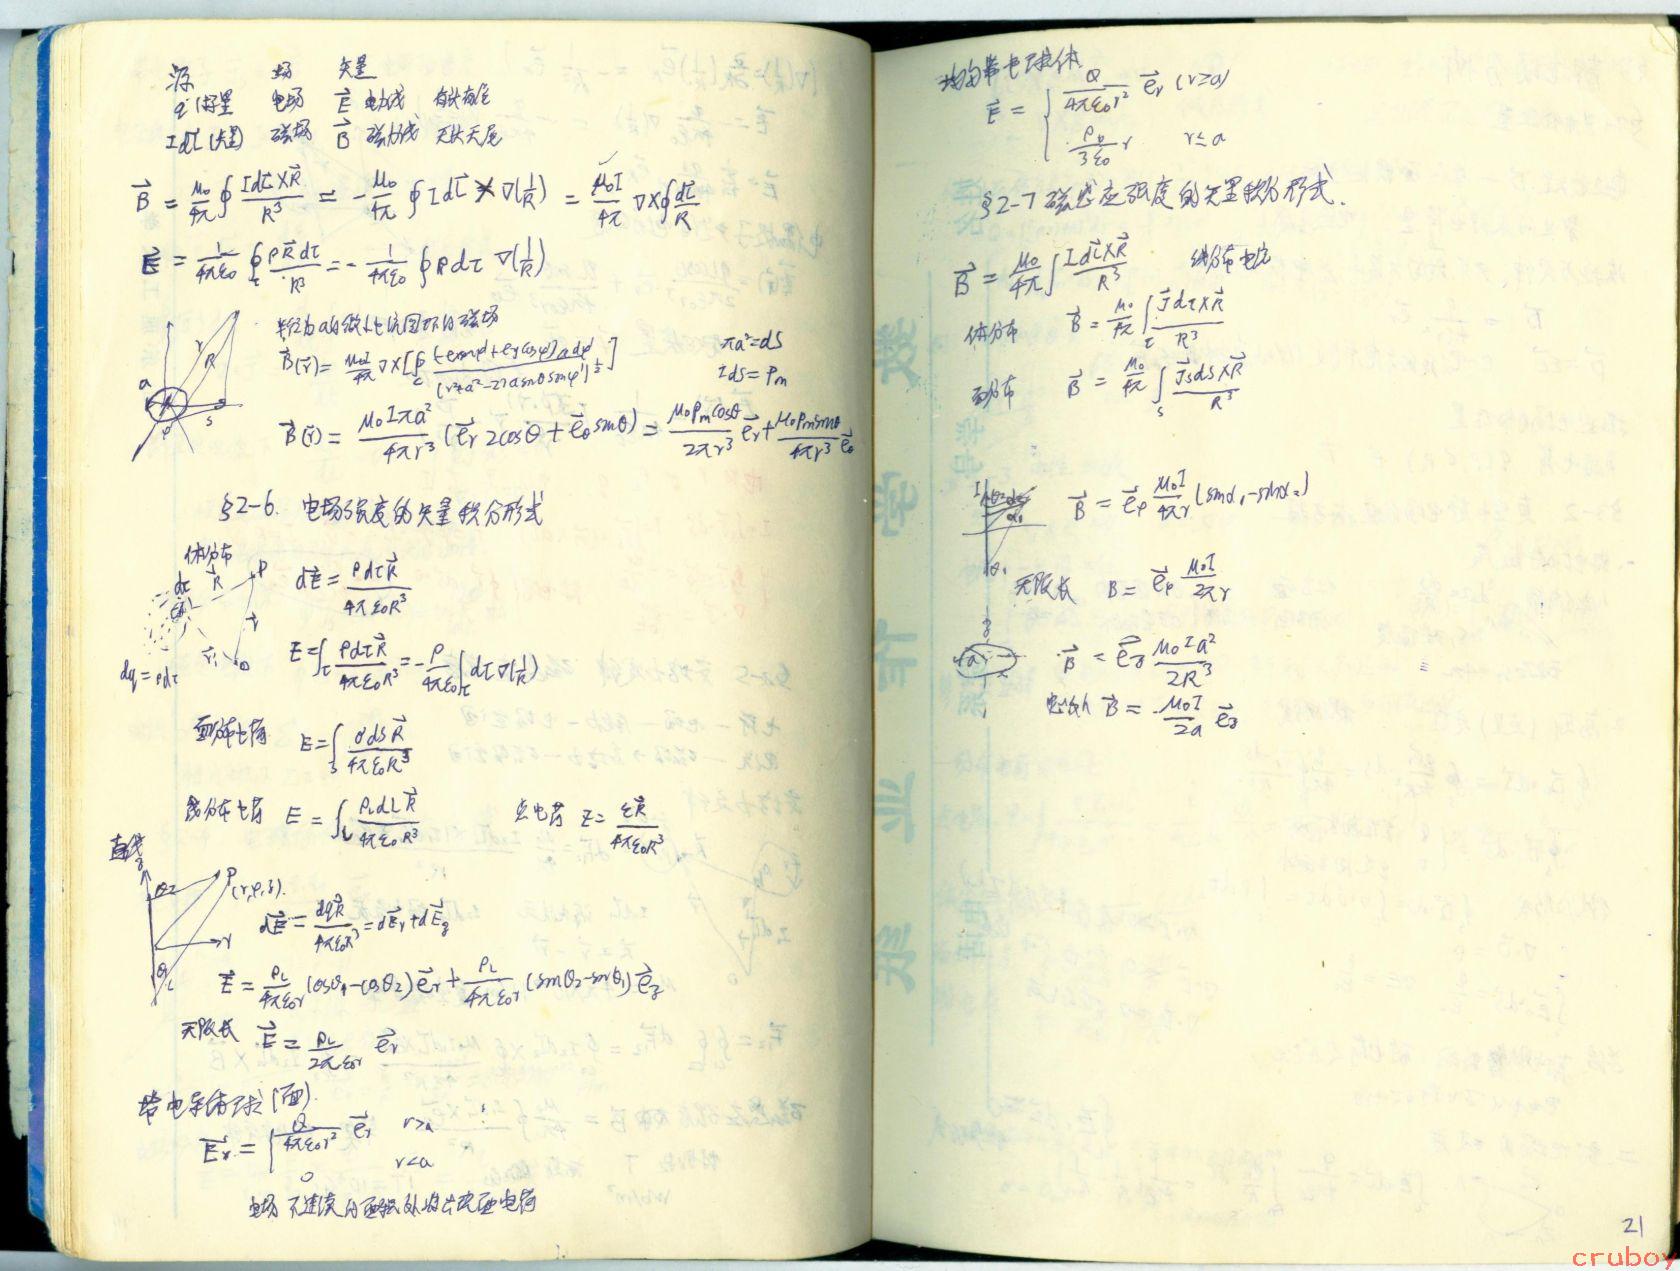 源 场 矢量
q (标量) 电场 \vec{E} 电力线 有头有尾
Id\vec{l} (矢量) 磁场 \vec{B} 磁力线 无头无尾
\vec{B} = \frac{μ_0}{4π} ∮ \frac{Id\vec{l}×\vec{R}}{R^3} = -\frac{μ_0}{4π} ∮ Id\vec{l} × ∇(\frac{1}{R}) = \frac{μ_0 I}{4π} ∇×∮\frac{d\vec{l}}{R}
\vec{E} = \frac{1}{4πε_0} ∮_τ \frac{ρ\vec{R}dτ}{R^3} = -\frac{1}{4πε_0} ∮ρdτ ∇(\frac{1}{R})
半径为a的微小电流圆环的磁场
\vec{B}(\vec{r}) = \frac{μ_0 I}{4π} ∇×[∮_c \frac{(-e_x sinφ' + e_y cosφ') a dφ'}{(r^2+a^2-2ra sinθ sinφ')^{\frac{1}{2}}}]
πa^2 = dS
IdS = P_m
\vec{B}(\vec{r}) = \frac{μ_0 Iπa^2}{4πr^3} (\vec{e}_r 2cosθ + \vec{e}_θ sinθ) = \frac{μ_0 P_m cosθ}{2πr^3} \vec{e}_r + \frac{μ_0 P_m sinθ}{4πr^3} \vec{e}_θ
§2-6. 电场强度的矢量积分形式
体分布
d\vec{E} = \frac{ρdτ\vec{R}}{4πε_0R^3}
dq = ρdτ
E = ∫_τ \frac{ρdτ\vec{R}}{4πε_0R^3} = -\frac{ρ}{4πε_0} ∫_τ dτ ∇(\frac{1}{R})
面分布电荷 E = ∫_s \frac{σds\vec{R}}{4πε_0R^3}
线分布电荷 E = ∫_L \frac{ρ_L dL\vec{R}}{4πε_0R^3} 点电荷 E = \frac{Σ\vec{R}}{4πε_0R^3}
直线
P(r,φ,z)
d\vec{E} = \frac{dq\vec{R}}{4πε_0R^3} = d\vec{E}_r + d\vec{E}_z
\vec{E} = \frac{ρ_L}{4πε_0r} (cosθ_1 - cosθ_2) \vec{e}_r + \frac{ρ_L}{4πε_0r} (sinθ_2 - sinθ_1) \vec{e}_z
无限长 \vec{E} = \frac{ρ_L}{2πε_0r} \vec{e}_r
带电导体球(面).
\vec{E}_r = { \frac{Q}{4πε_0r^2} \vec{e}_r r>a
0 r<a
电场不连续的面处出现面电荷
均匀带电球体
\vec{E} = { \frac{Q}{4πε_0r^2} \vec{e}_r (r≥a)
\frac{ρ_0}{3ε_0} r r≤a
§2-7 磁感应强度的矢量积分形式.
\vec{B} = \frac{μ_0}{4π} ∫ \frac{Id\vec{l}×\vec{R}}{R^3} 线分布电流
体分布 \vec{B} = \frac{μ_0}{4π} ∫_τ \frac{\vec{J}dτ×\vec{R}}{R^3}
面分布 \vec{B} = \frac{μ_0}{4π} ∫_s \frac{\vec{J}_s ds×\vec{R}}{R^3}
\vec{B} = \vec{e}_φ \frac{μ_0 I}{4πr} (sinα_1 - sinα_2)
无限长 B = \vec{e}_φ \frac{μ_0 I}{2πr}
\vec{B} = \vec{e}_z \frac{μ_0 I a^2}{2R^3}
\vec{B} = \frac{μ_0 I}{2a} \vec{e}_z
21
cruboy